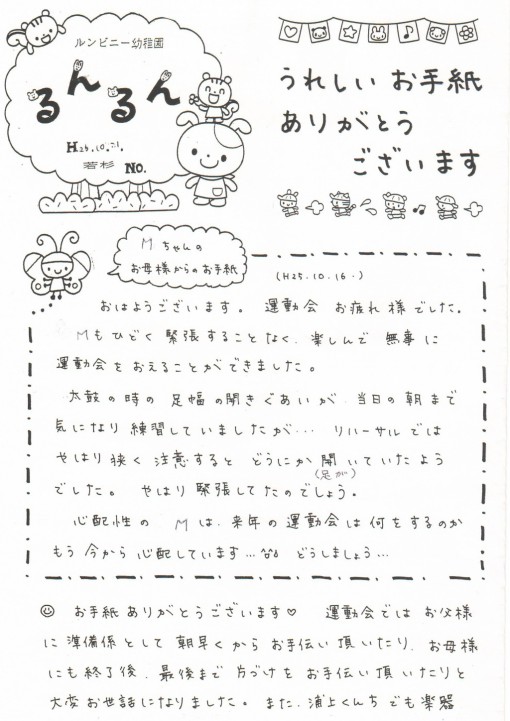 ルンビニー幼稚園
るんるん
H25.10.21.
若杉 No.
うれしい お手紙
ありがとう
ございます
Mちゃんの
お母様からのお手紙
(H25.10.16.)
おはようございます。 運動会 お疲れ様でした。
Mもひどく 緊張することなく、楽しんで 無事に
運動会をおえることができました。
太鼓の時の 足幅の開きぐあいが、当日の朝まで
気になり 練習していましたが… リハーサルでは
やはり狭く 注意すると どうにか 開いていたよう
(足が)
でした。 やはり 緊張してたのでしょう。
心配性の Mは、来年の運動会は何をするのか
もう今から 心配しています… どうしましょう…
お手紙ありがとうございます♡ 運動会では お父様
に 準備係として 朝早くから お手伝い頂いたり、お母様
にも終了後、最後まで 片づけを お手伝い頂いたりと
大変お世話になりました。 また、浦上くんち でも楽器